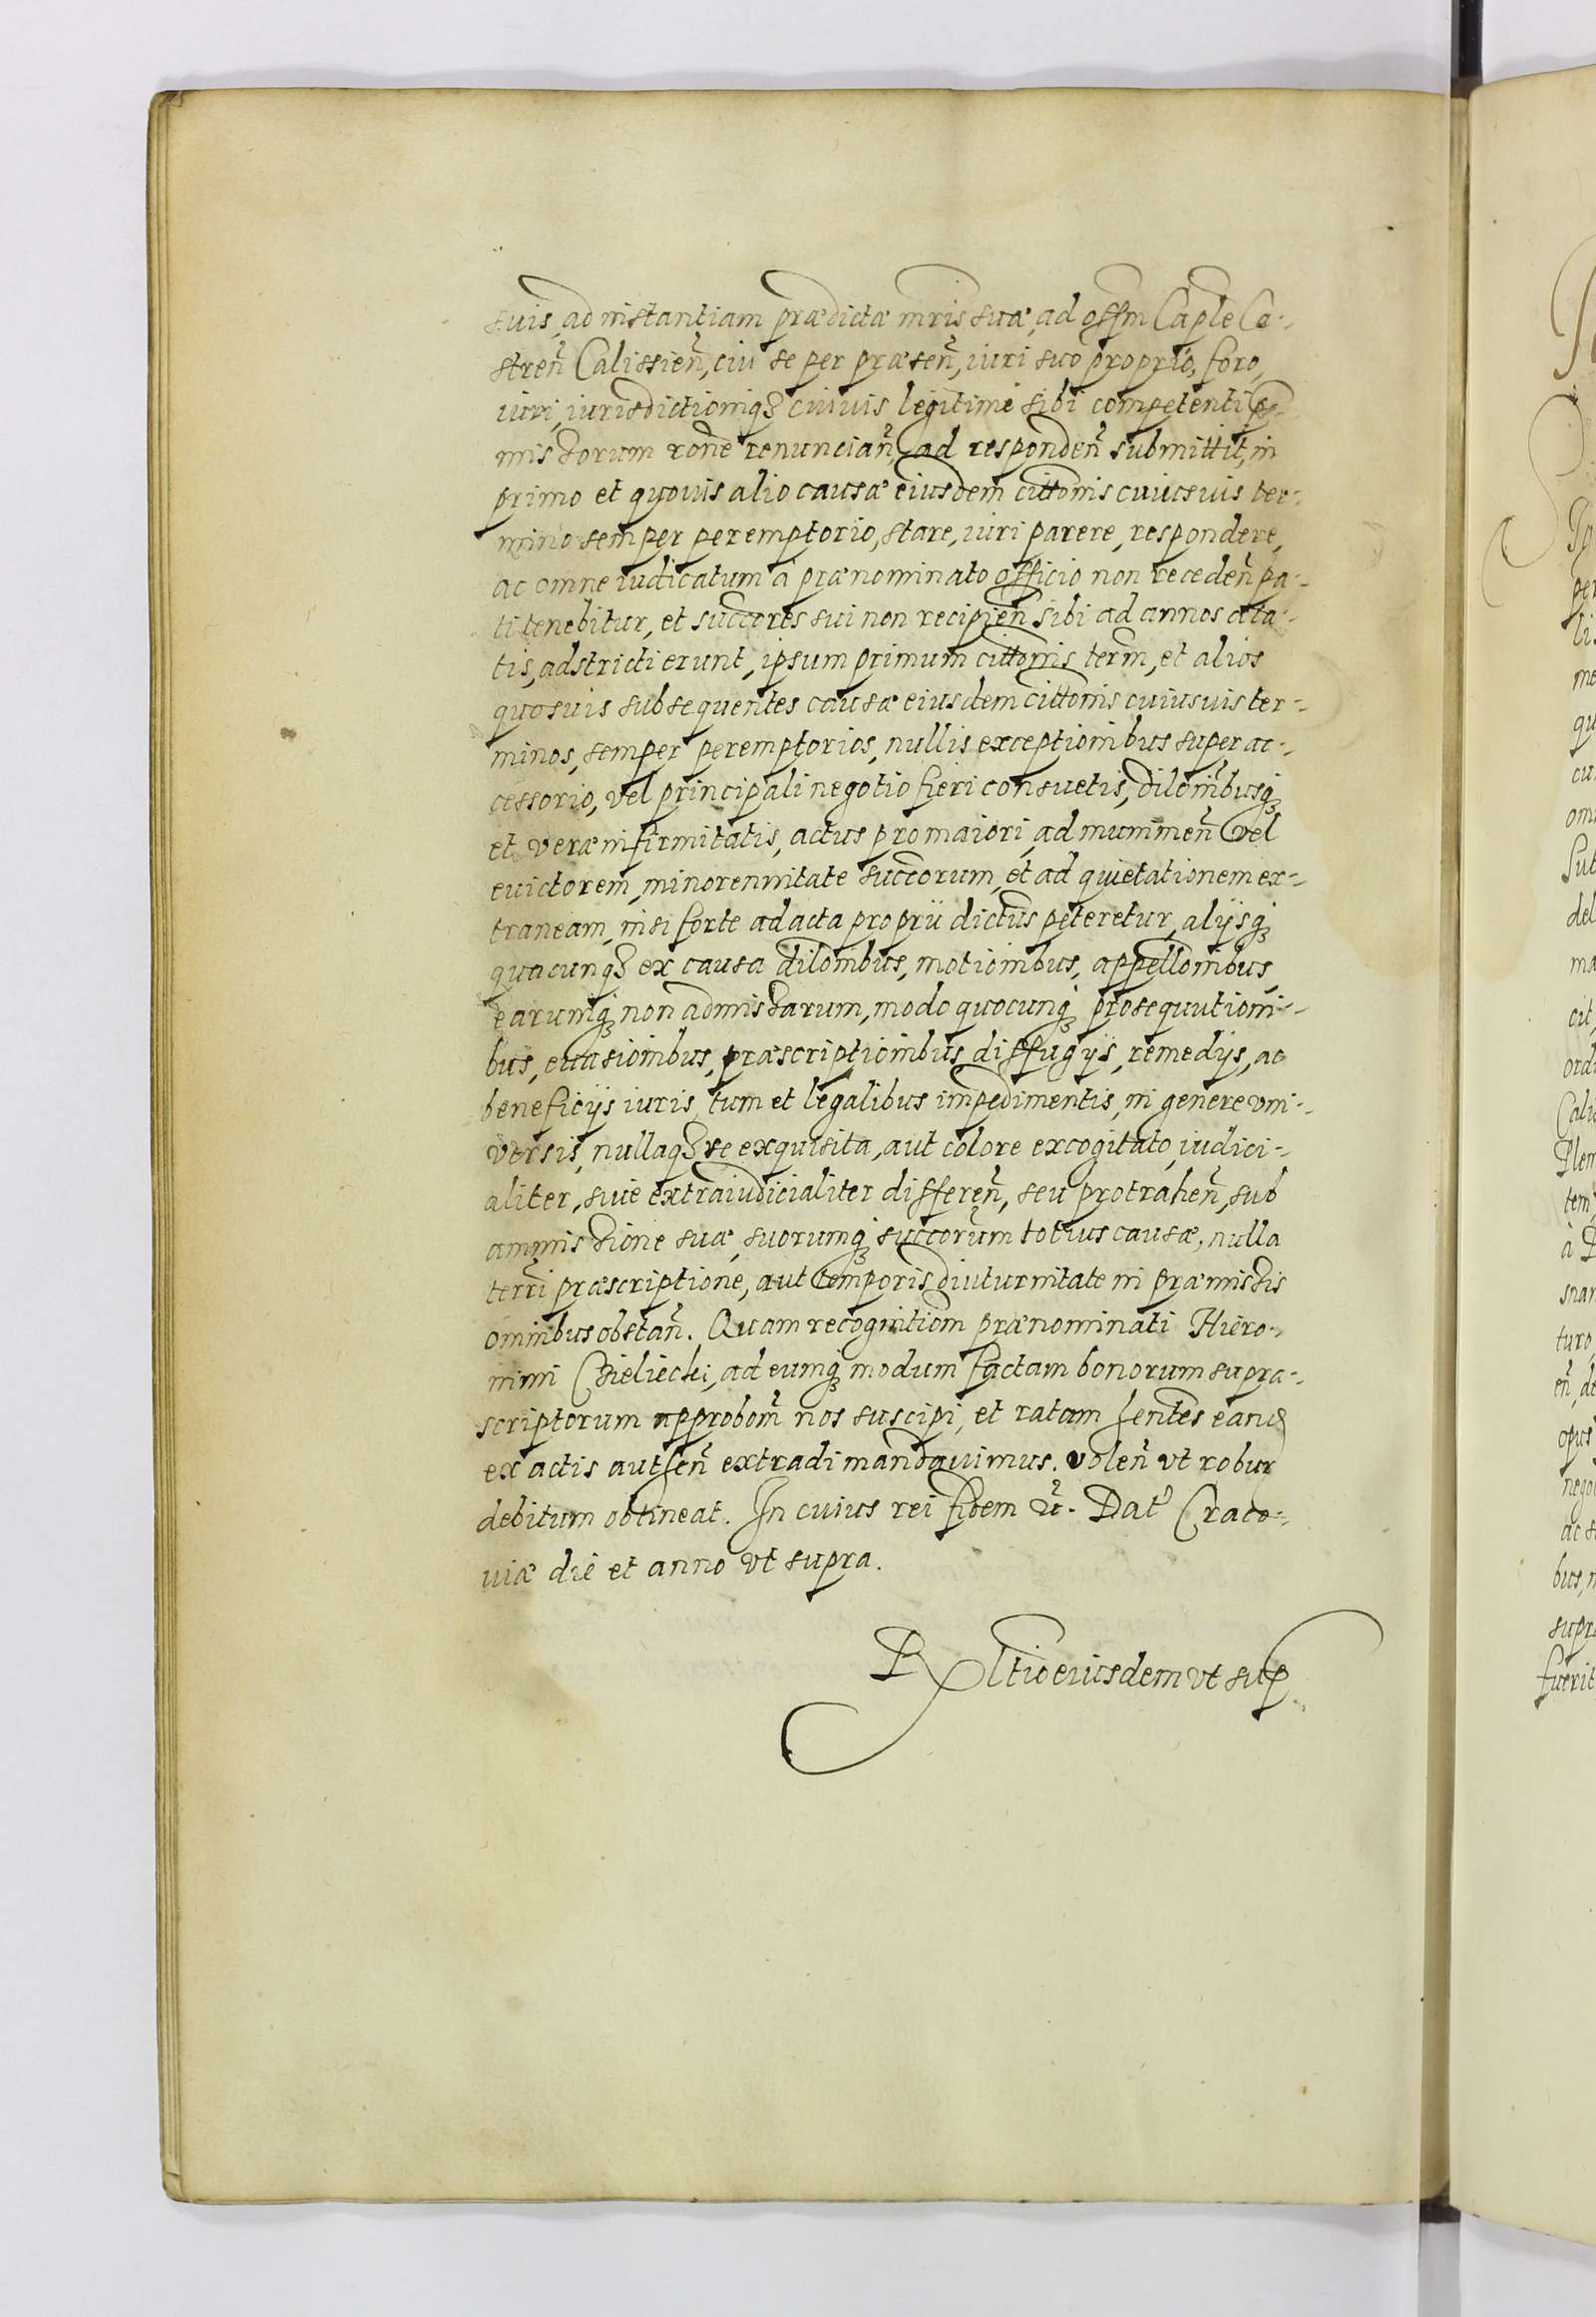 suis, ad instantiam prædictæ mris suæ, ad offm Caple Ca-
stren̄ Calissien̄, cui se per præsen̄, iuri suo proprio, foro,
iuri, iurisdictioniq3 cuiuis legitime sibi competenti
missorum rone renuncian̄, ad responden̄ submittit, in
primo et quouis alio causæ eiusdem cittonis cuiusuis ter-
mino semper peremptorio, stare, iuri parere, respondere,
ac omne iudicatum a prænominato officio non receden̄ pa-
ti tenebitur, et succores sui non recipien̄ sibi ad annos æta-
tis, adstricti erunt, ipsum primum cittonis term̄, et alios
quosuis subsequentes causæ eiusdem cittonis cuiusuis ter-
minos, semper peremptorios, nullis exceptionibus super ac-
cessorio, vel principali negotio fieri consuetis, dilonibusq3
et veræ infirmitatis, actus pro maiori, ad munimen̄ vel
euictorem, minorennitate succorum, et ad quietationem ex-
traneam, nisi forte ad acta proprii dictus peteretur, alijsq3
quacunq3 ex causa dilonibus, motionibus, appellonibus,
earumq3 non admissarum, modo quocunq3 prosequutioni-
bus, euasionibus, præscriptionibus, diffugijs, remedijs, ac
beneficijs iuris, tum et legalibus impedimentis, in genere vni-
versis, nullaq3 re exquisita, aut colore excogitato, iudici-
aliter, siue extraiudicialiter differen̄, seu protrahen̄, sub
ammissione suæ, suorumq3 succorum totius causæ, nulla
terri præscriptione, aut temporis diuturnitate in præmissis
omnibus obstan̄. Quam recognitiom prænominati Hiero-
nimi Bieliecki, ad eumq3 modum factam bonorum supra-
scriptorum approbom̄ nos suscipi, et ratam hentes eand
ex actis authen̄ extradi mandauimus. volen̄ vt robur
debitum obtineat. In cuius rei fidem &. Dat Craco-
uiæ die et anno vt supra.
Rltio eiusdem vt sup